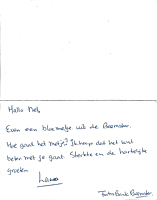 Hallo Nel,
Even een bloemetje uit de Beemster.
Hoe gaat het met je? Ik hoop dat het wat
beter met je gaat. Sterkte en de hartelijke
groeten